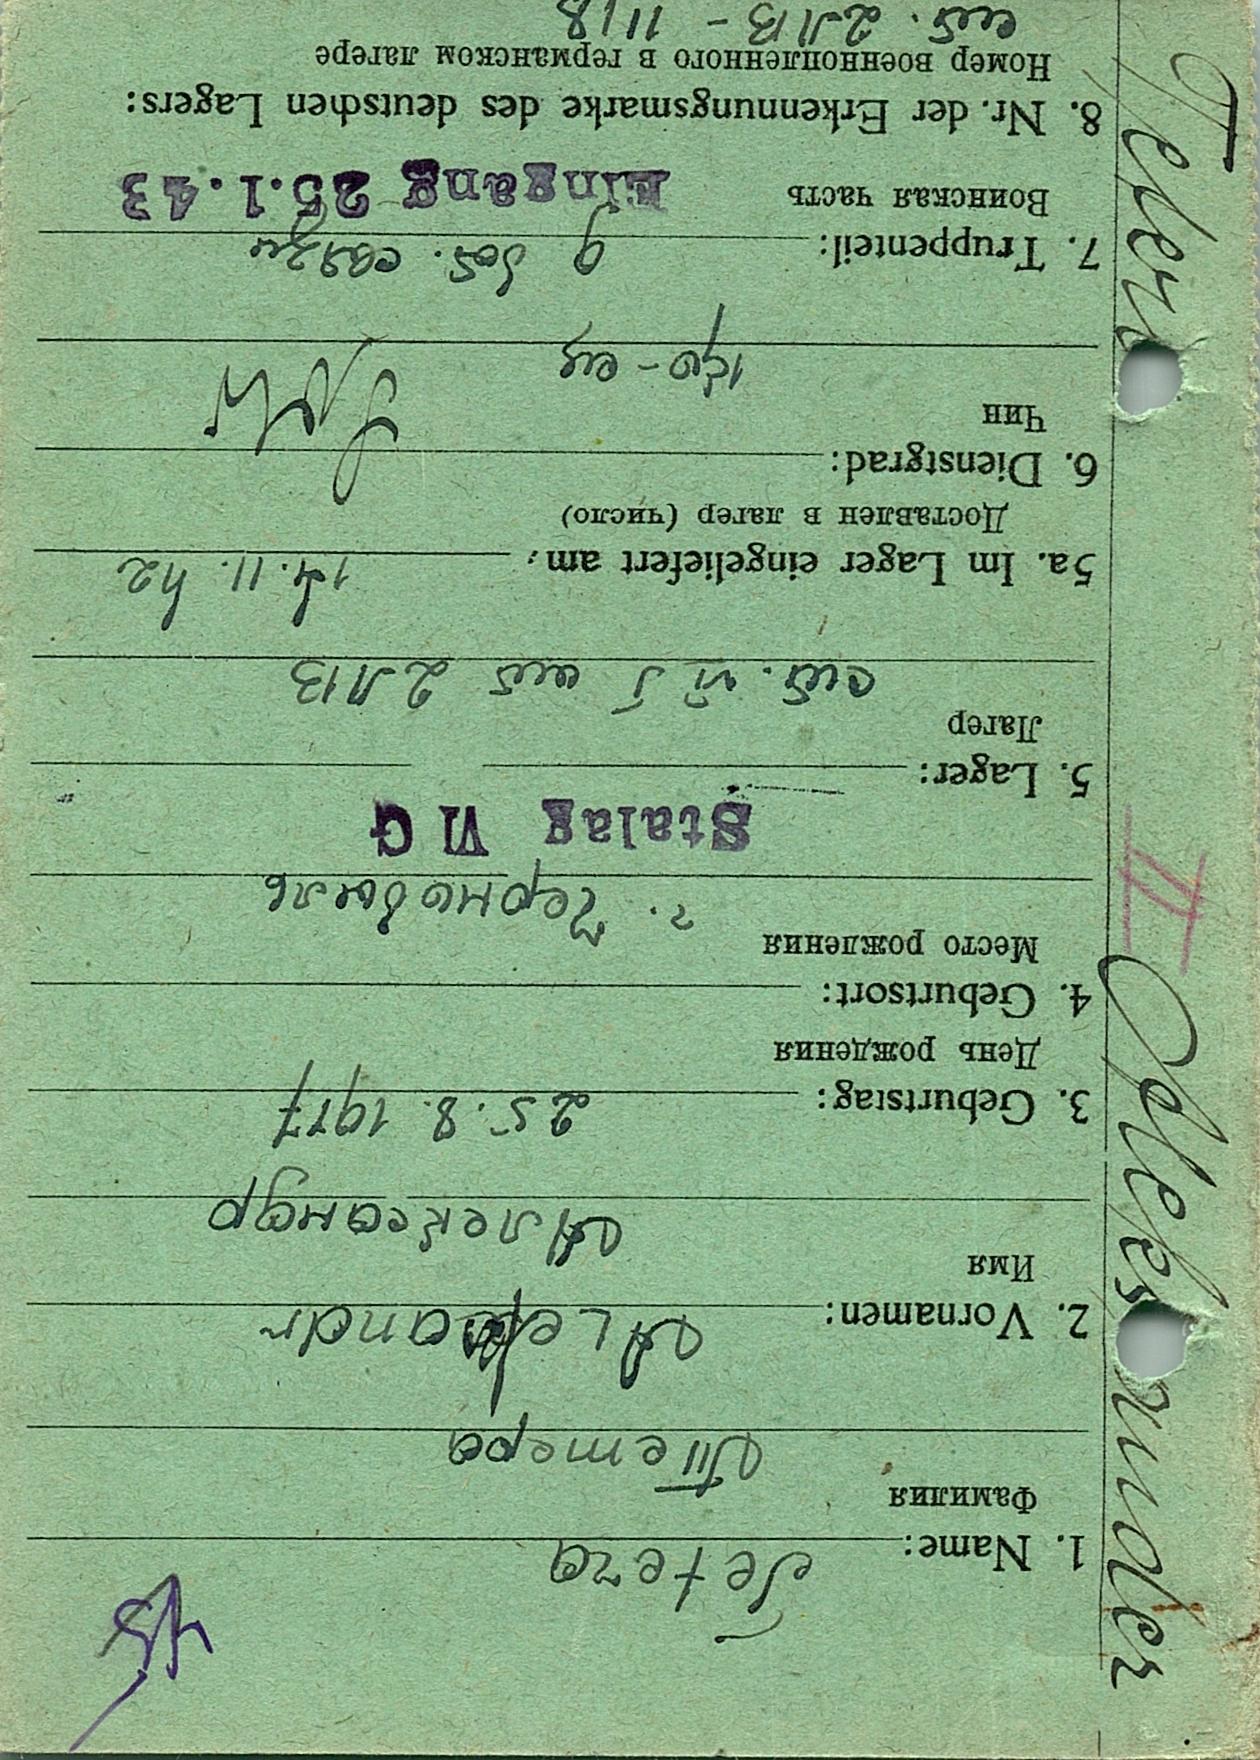 1. Name: Tetera
Фамилия
Тетера
2. Vornamen: Alexandr
Имя
Александр
3. Geburtstag: 25.8.1917
День рождения
4. Geburtsort:
Место рождения
г. Чернобыль
Stalag VI G
5. Lager:
Лагер
5a. Im Lager eingeliefert am: 14.11.42
Доставлен в лагер (число)
6. Dienstgrad:
Чин
7. Truppenteil: 9 бат. связи
Воинская часть
Eingang 25.1.43
8. Nr. der Erkennungsmarke des deutschen Lagers:
Номер военнопленного в германском лагере
II